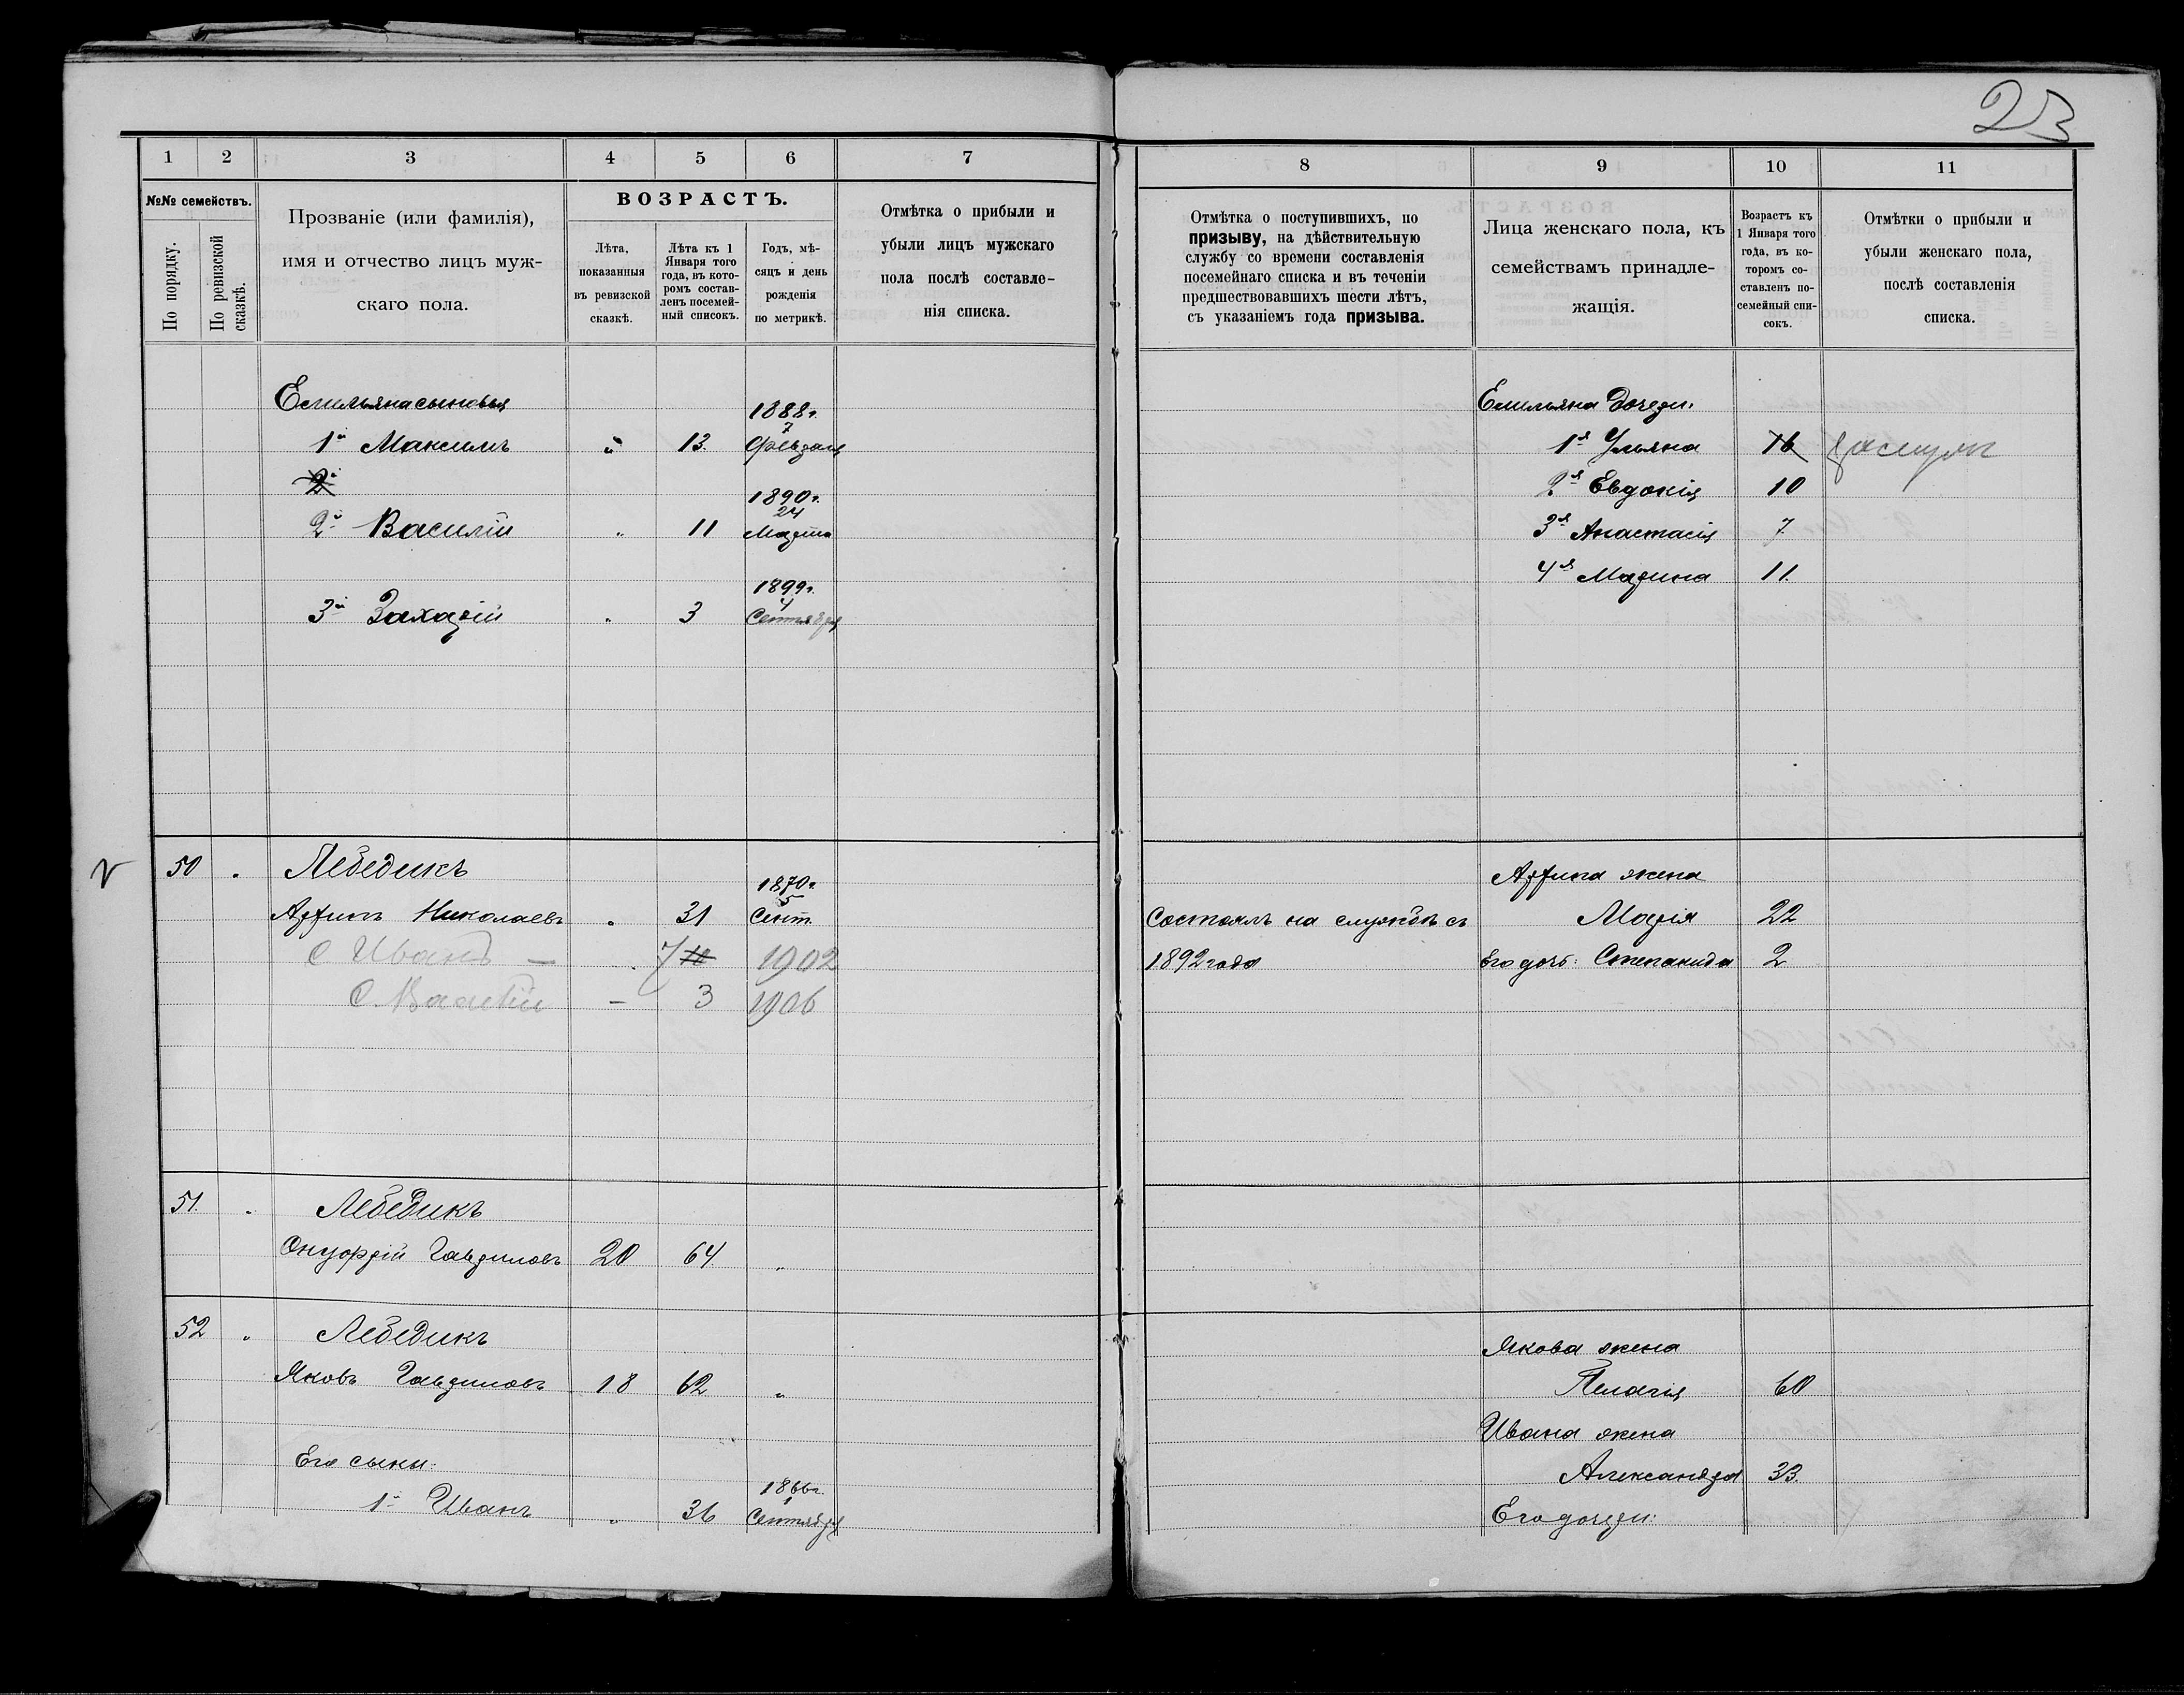 23
1 2 3 4 5 6 7
№№ семействъ.
По порядку.
По ревизской сказкѣ.
Прозваніе (или фамилія),
имя и отчество лицъ муж-
скаго пола.
ВОЗРАСТЪ.
Лѣта,
показанныя
въ ревизской
сказкѣ.
Лѣта къ 1
Января того
года, въ кото-
ромъ состав-
ленъ посемей-
ный списокъ.
Годъ, мѣ-
сяцъ и день
рожденія
по метрикѣ.
Отмѣтка о прибыли и
убыли лицъ мужскаго
пола послѣ составле-
нія списка.
Емельяна сыновья
1888г.
7
1й Максимъ " 13. Февраля
2й
1890г.
24
2й Василій " 11 Марта
1899г.
4
3й Захарій " 3 Сентября
50 " Лебедикъ
1870г.
5
Архипъ Николаевъ " 31 Сент.
С Иванъ — 7 10 1902
С. Василій — 3 1906
51. " Лебедикъ
Онуфрій Гавриловъ 20 64 "
52 " Лебедикъ
Яковъ Гавриловъ 18 62 "
Его сыны:
1866г.
1
1й Иванъ " 36 Сентября
8 9 10 11
Отмѣтка о поступившихъ, по
призыву, на дѣйствительную
службу со времени составленія
посемейнаго списка и въ теченіи
предшествовавшихъ шести лѣтъ,
съ указаніемъ года призыва.
Лица женскаго пола, къ
семействамъ принадле-
жащія.
Возрастъ къ
1 Января того
года, въ ко-
торомъ со-
ставленъ по-
семейный спи-
сокъ.
Отмѣтки о прибыли и
убыли женскаго пола,
послѣ составленія
списка.
Емельяна дочери:
1я Ульяна 16
2я Евдокія 10
3я Анастасія 7.
4я Марина 11.
Архипа жена
Состоялъ на службѣ съ Марія 22
1892 года Его дочь: Степанида 2
Якова жена
Пелагія 60
Ивана жена
Александра 33.
Его дочери: